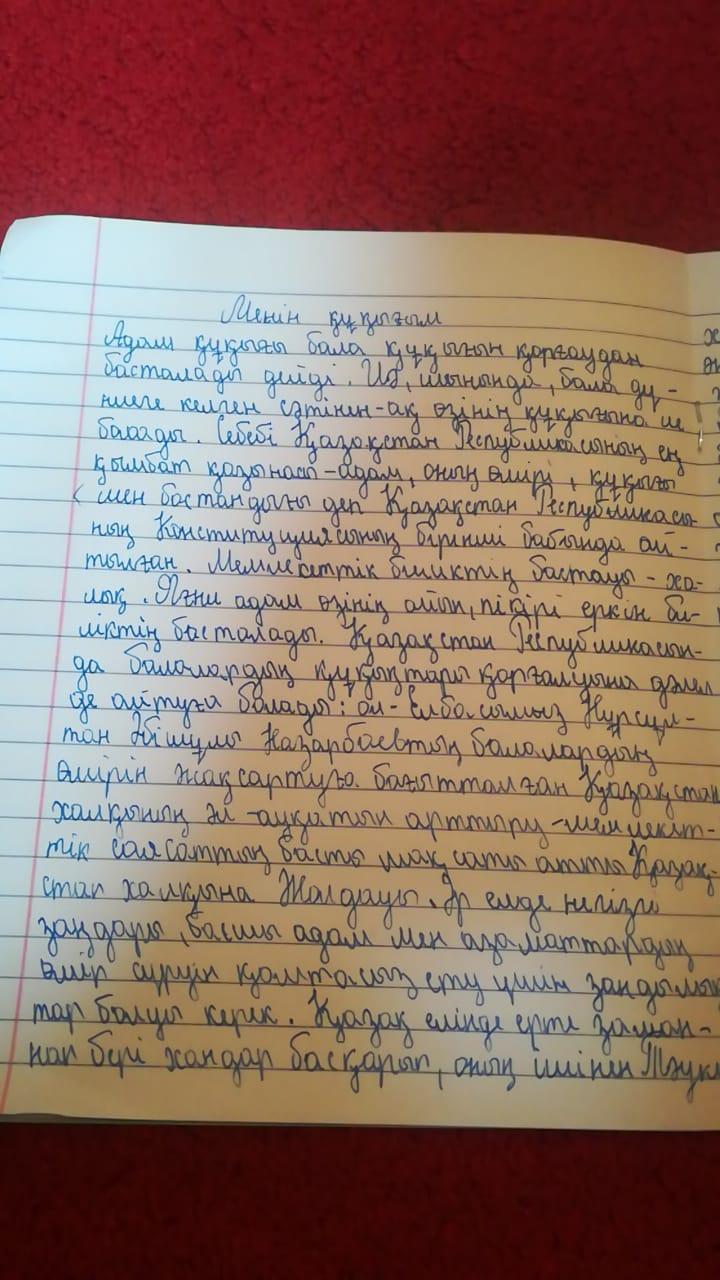 Менің құқығым
Адам құқығы бала құқығын қорғаудан
басталады дейді. Иә, шынында, бала дү-
ниеге келген сәтінен-ақ өзінің құқығына ие
болады. Себебі Қазақстан Республикасының ең
қымбат қазынасы-адам, оның өмірі, құқығы
мен бостандығы деп Қазақстан Республикасы-
ның Конституциясының бірінші бабында ай-
тылған. Мемлекеттік биліктің бастауы - ха-
лық. Яғни адам өзінің ойын, пікірі еркін би-
ліктің басталады. Қазақстан Республикасын-
да балалардың құқықтары қорғалуына дәлел
де айтуға болады: ол- Елбасымыз Нұрсұл-
тан Әбішұлы Назарбаевтың балалардың
өмірін жақсартуға бағытталған Қазақстан
халқының әл-ауқатын арттыру-мемлекет-
тік саясаттың басты мақсаты атты Қазақ-
стан халқына Жолдауы. Әр елде негізгі
заңдары, басшы адам мен азаматтардың
өмір сүруін қамтасыз ету үшін заңдылық
тар болуы керек. Қазақ елінде ерте заман-
нан бері хандар басқарып, оның ішінен Тәуке
ж